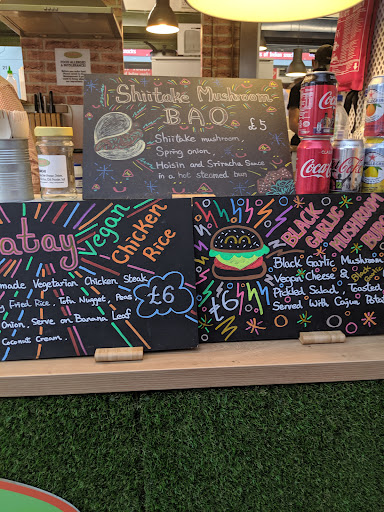 Shiitake Mushroom
B.A.O
£5
Shiitake mushroom,
Spring onion,
Hoisin and Sriracha Sauce
in a hot steamed bun
atay Vegan
Chicken
Rice
made Vegetarian Chicken Steak
Fried Rice, Tofu Nugget, Peas
Onion, Serve on Banana Leaf
Coconut Cream.
£6
BLACK
GARLIC
MUSHROOM
£6
Black Garlic Mushroom
Vegan Cheese &
Pickled Salad, Toasted
Served With Cajun Potat
Coca-Cola
Coca-Cola
Coca-Cola